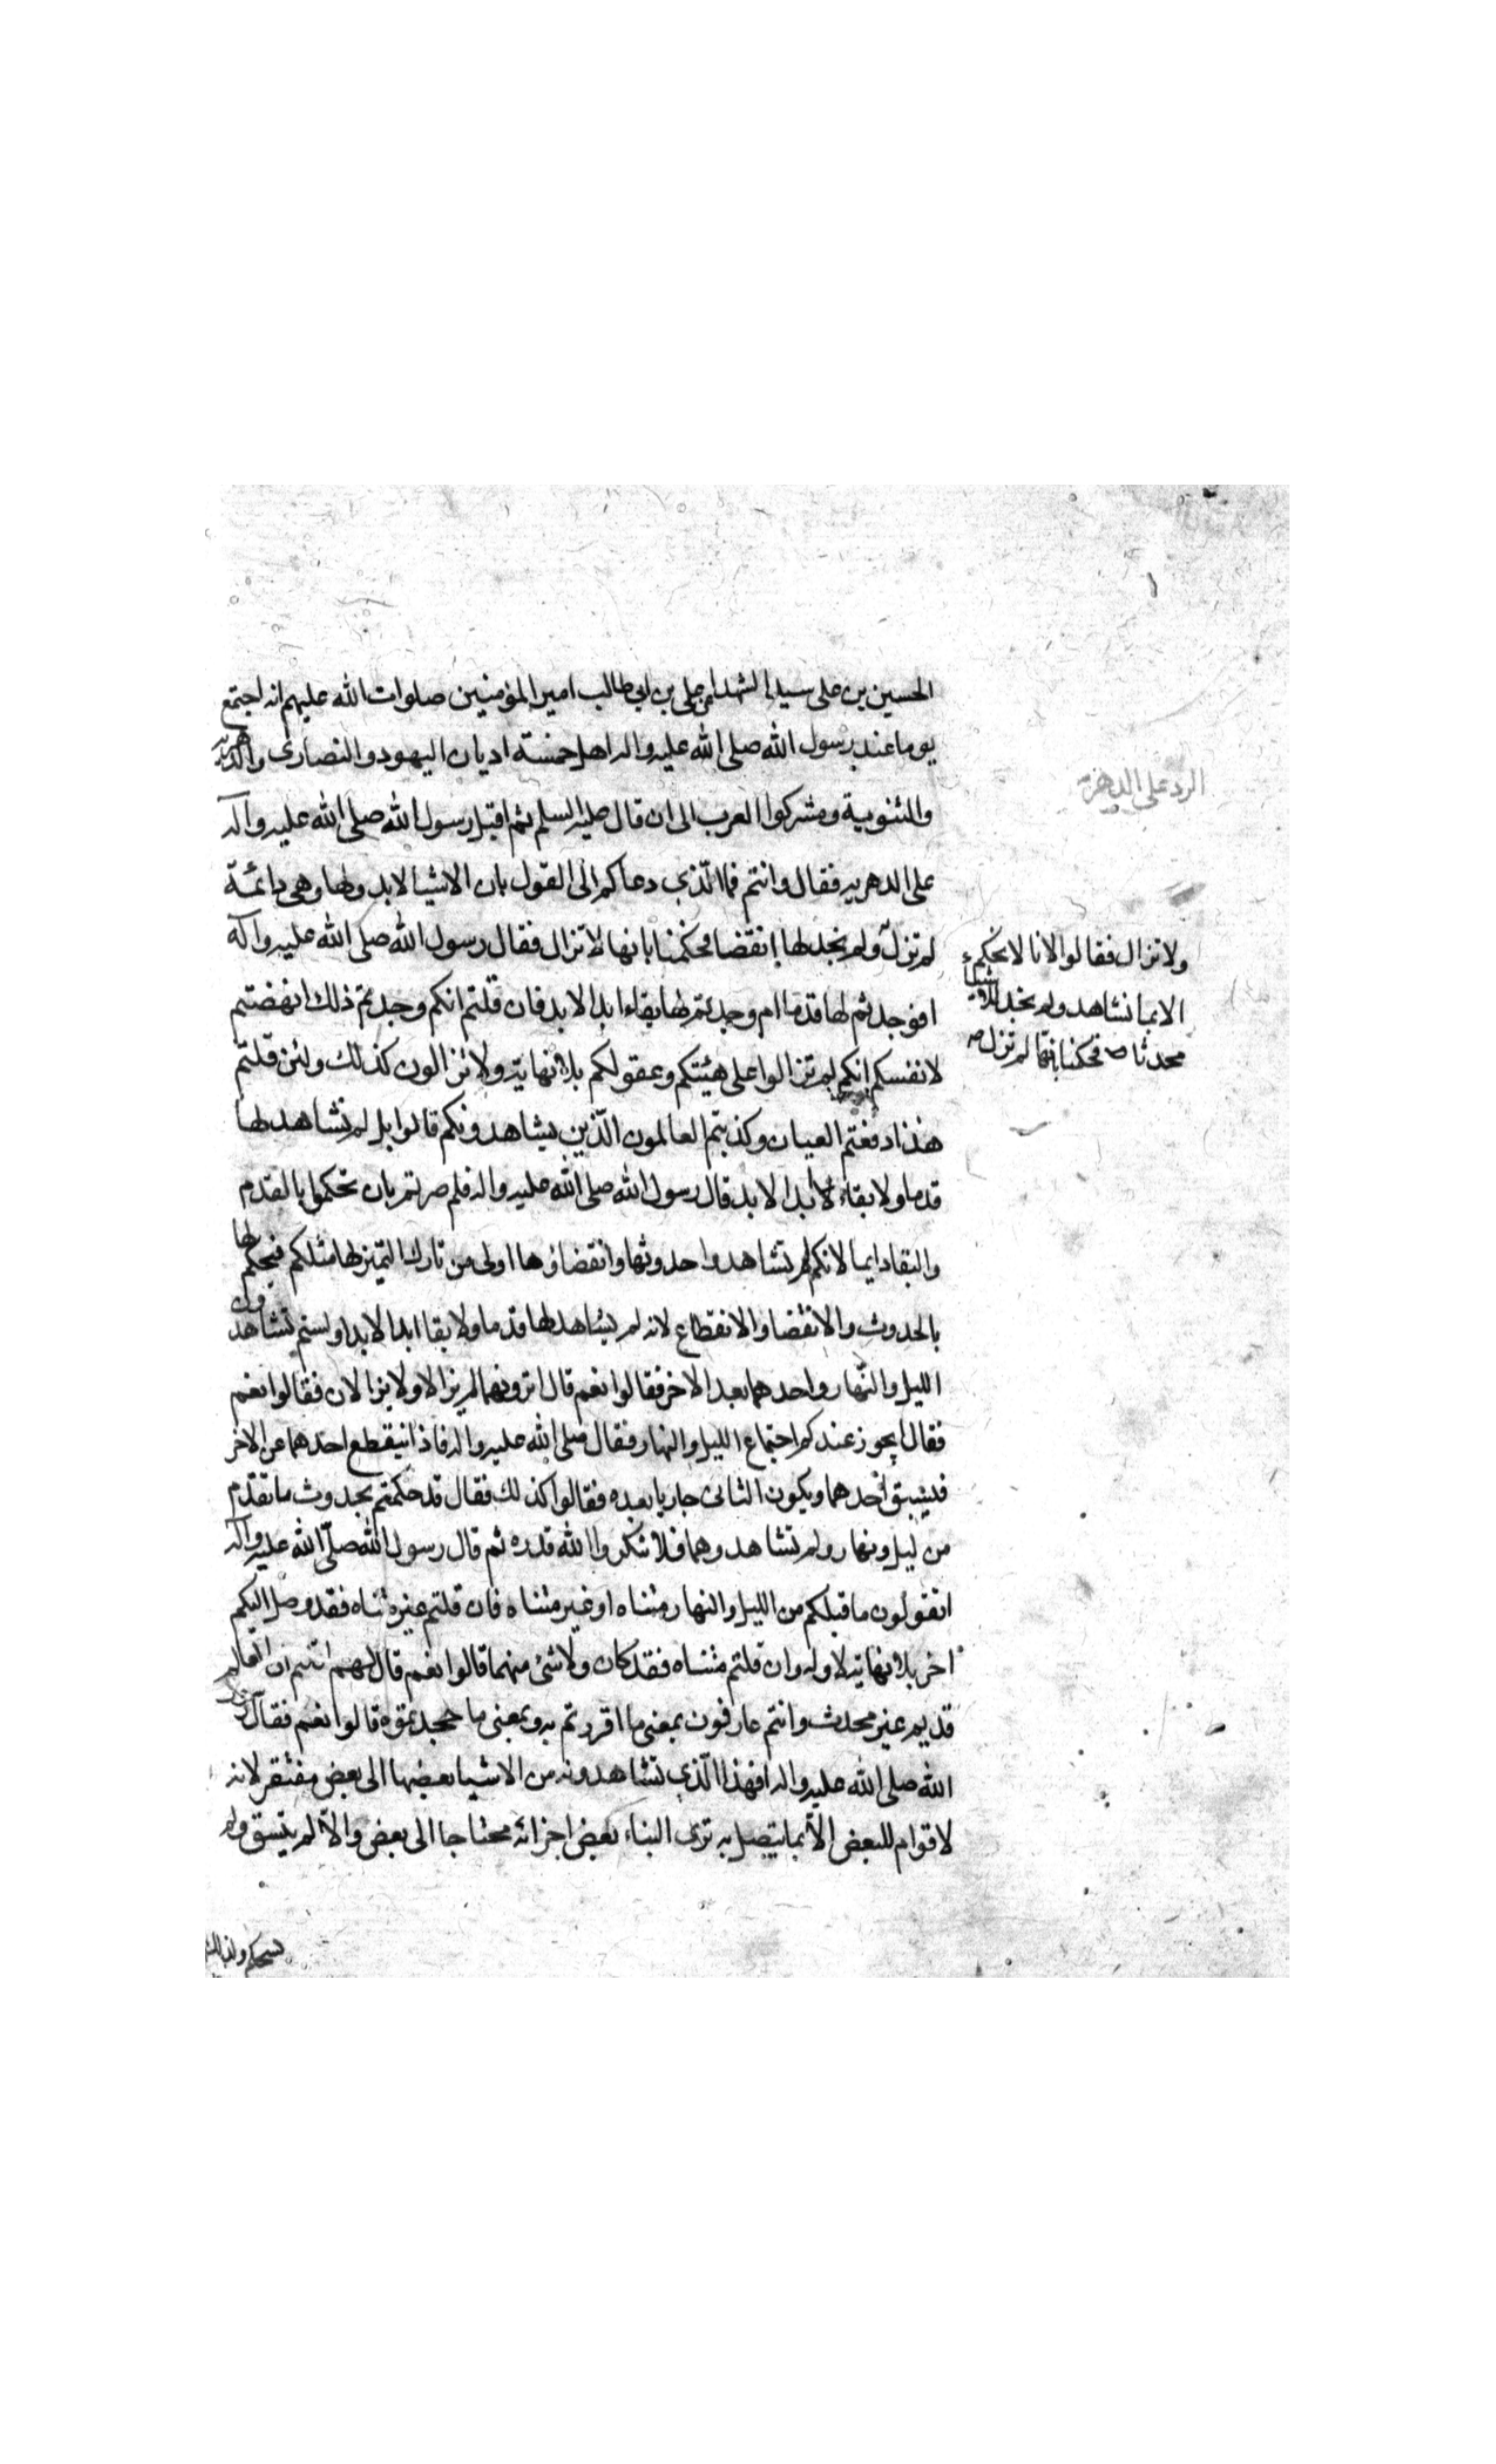 الحسين بن على سيد الشهدا عن على بن ابى طالب امير المؤمنين صلوات الله عليهم انه اجتمع
يوما عند رسول الله صلى الله عليه واله اهل خمسة اديان اليهود والنصارى والدهريه
والثنوية ومشركوا العرب الى ان قال عليه السلم ثم اقبل رسول الله صلى الله عليه وآله
على الدهريه فقال وانتم فما الّذى دعاكم الى القول بان الاشيا لا بدو لها وهى دائمة
لم تزل ولم نجد لها انقضا فحكمنا بانها لا تزال فقال رسول الله صلى الله عليه وآله
افوجدتم لها قدما ام وجدتم لها بقاء ابد الابد فان قلتم انكم وجدتم ذلك انهضتم
لانفسكم انكم لم تزالوا على هيئتكم وعقولكم بلا نهاية ولا تزالون كذلك ولئن قلتم
هذا دفعتم العيان وكذبتم العالمون الّذين يشاهدونكم قالوا بل لم نشاهد لها
قدما ولا بقاء لا بد الابد قال رسول الله صلى الله عليه واله فلم صرتم بان تحكموا بالقدم
والبقا دايما لانكم لم تشاهدوا حدوثها وانقضاؤها اولى من تارك التميز لها مثلكم فيحكم لها
بالحدوث والانقضا والانقطاع لانه لم يشاهد لها قدما ولا بقا ابد الابد اولستم تشاهدون
الليل والنهار واحدهما بعد الاخر فقالوا نعم قال اترونهما لم يزالا ولا يزالان فقالوا نعم
فقال ايجوز عندكم اجتماع الليل والنهار فقال صلى الله عليه واله فاذا ينقطع احدهما عن الاخر
فيسبق احدهما ويكون الثانى جاريا بعده فقالوا كذلك فقال قد حكمتم بحدوث ما تقدم
من ليل ونهار ولم تشاهدوهما فلا تنكروا الله قدره ثم قال رسول الله صلّى الله عليه وآله
اتقولون ما قبلكم من الليل والنهار متناه او غير متناه فان قلتم غير متناه فقد وصل اليكم
اخر بلا نهاية لاوله وان قلتم متناه فقد كان ولا شئ منهما قالوا نعم قال لهم اقلتم ان العالم
قديم غير محدث وانتم عارفون بمعنى ما اقررتم به وبمعنى ما جحدتموه قالوا نعم فقال رسول
الله صلى الله عليه واله افهذا الّذى تشاهدونه من الاشيا بعضها الى بعض مفتقر لانه
لا قوام للبعض الّا بما يتصل به ترى البناء بعض اجزائه محتاجا الى بعض والّا لم يتسق ولم
يستحكم ولذلك
الرد على الدهرية
ولا تزال فقالوا لانا لا نحكم
الا بما نشاهد ولم نجد للاشياء
محدثا فحكمنا بانها لم تزل